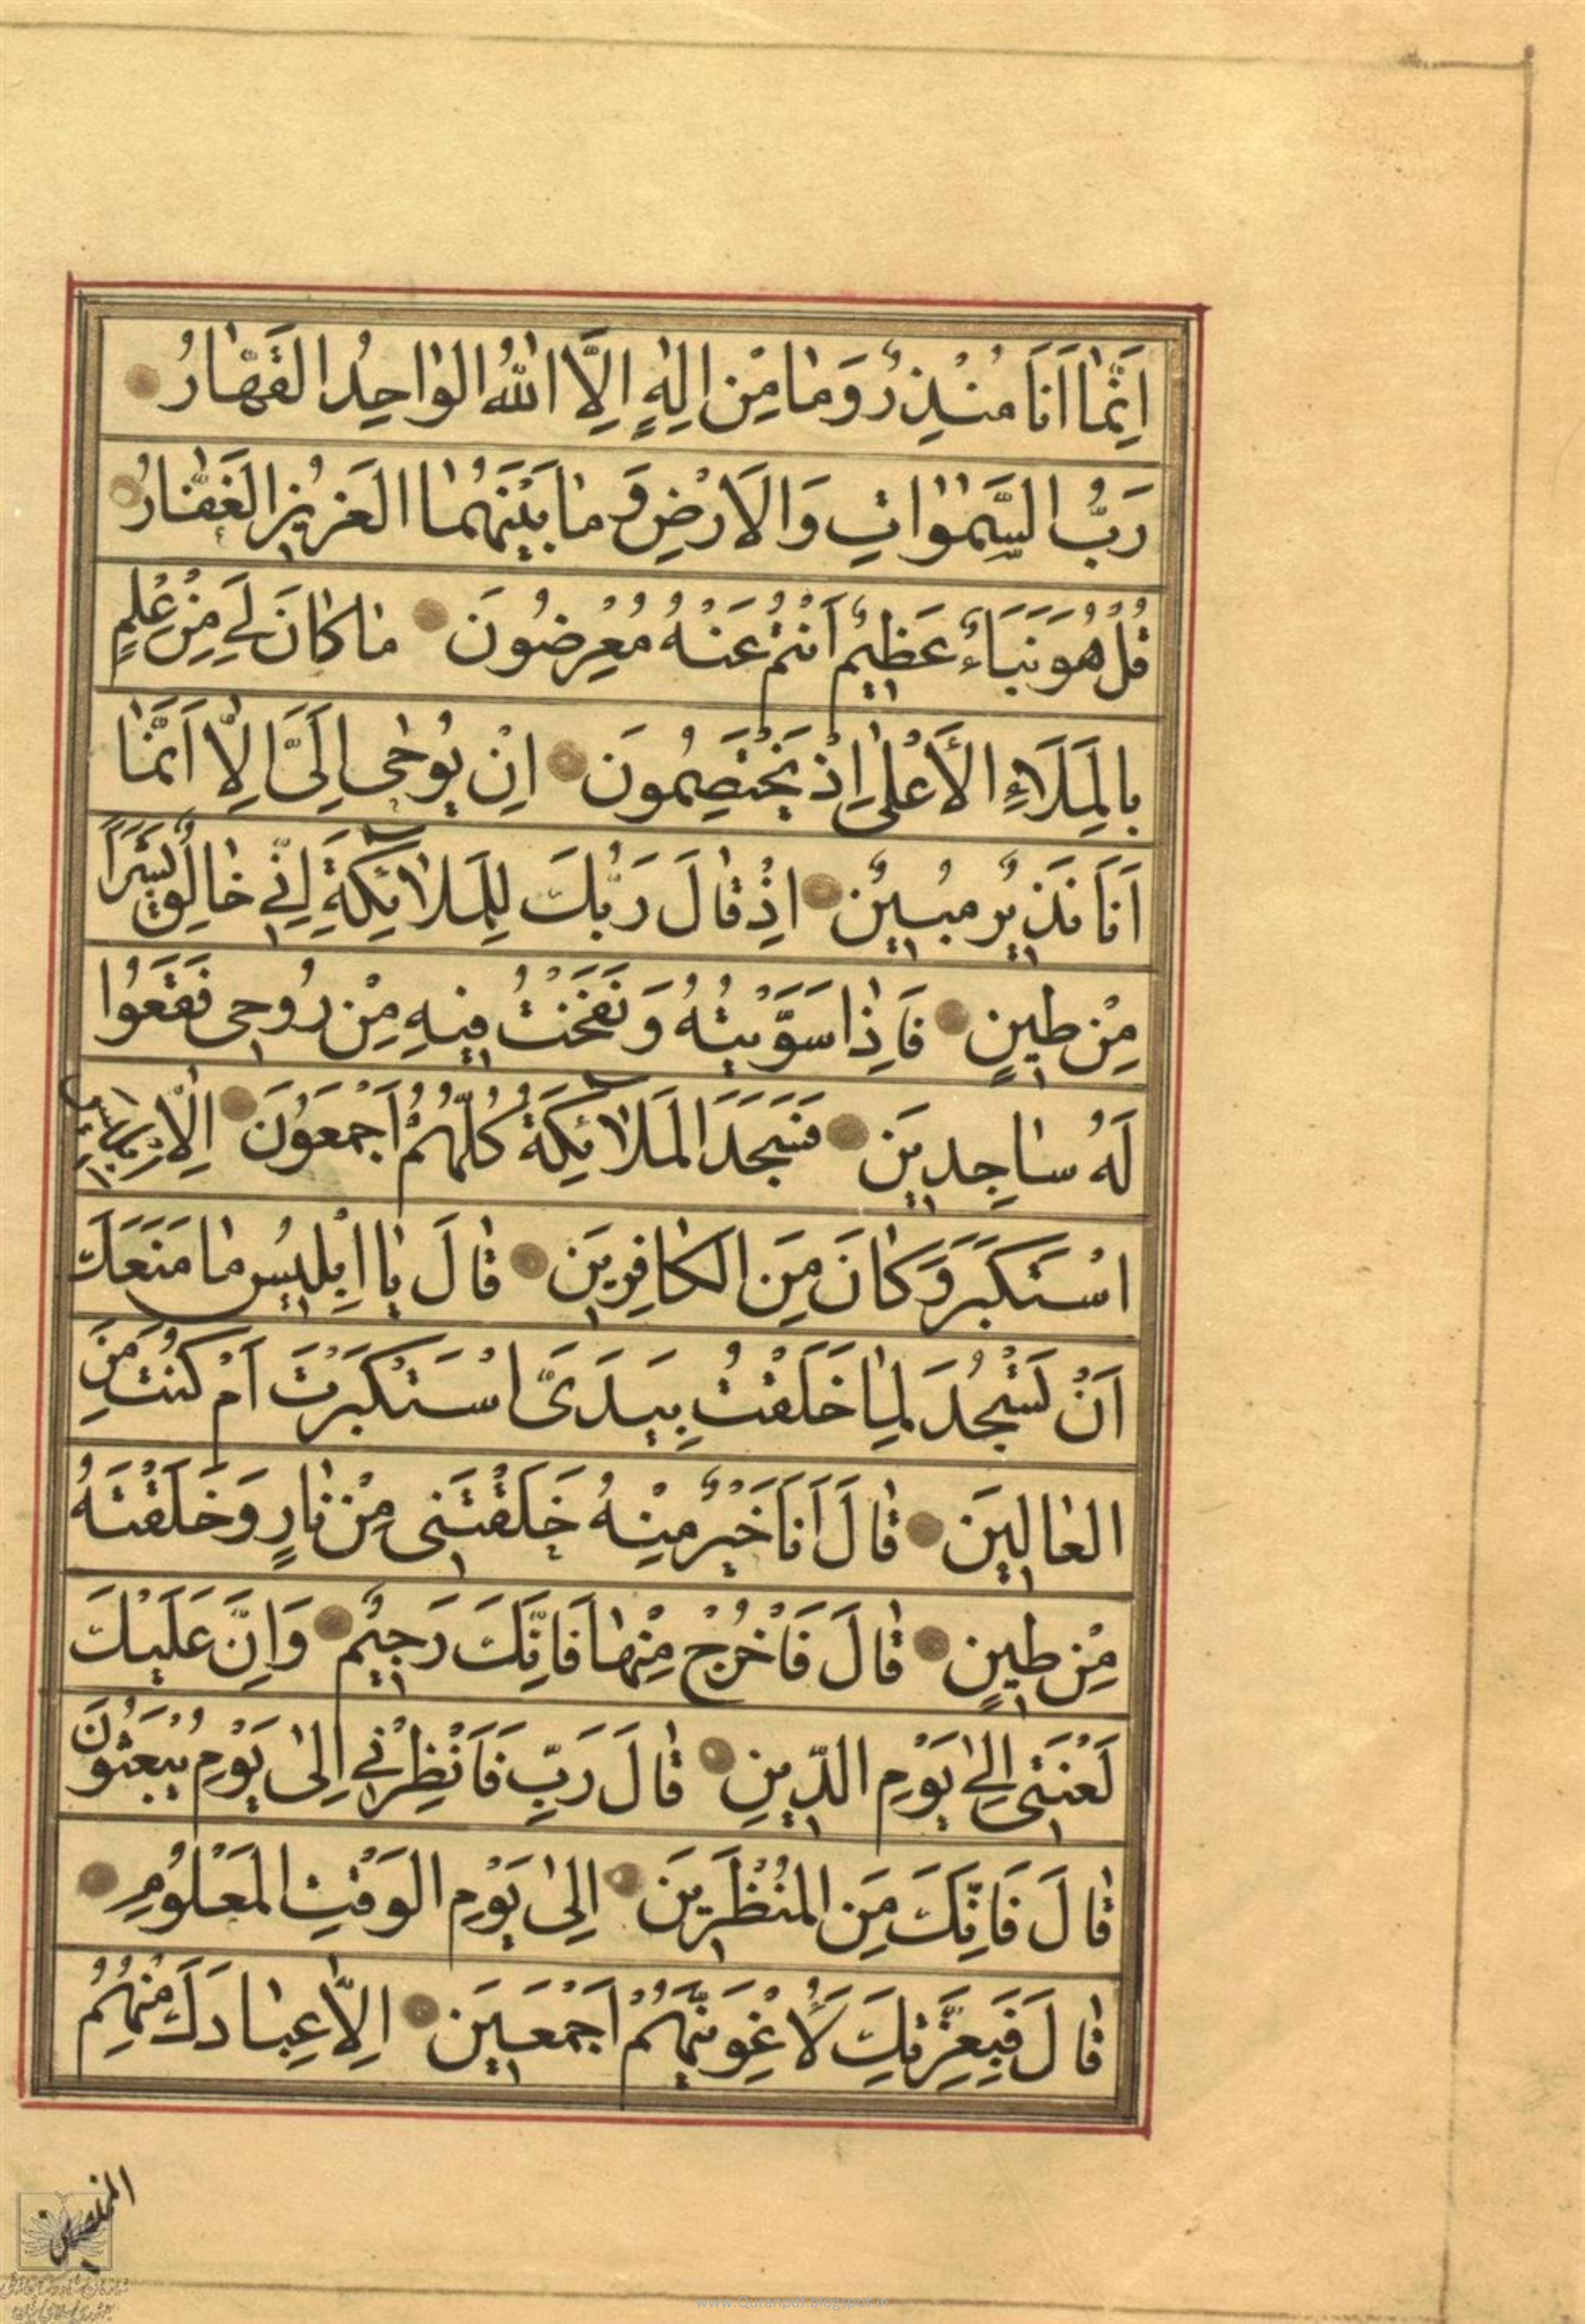 اِنَّمٰا اَنَا مُنْذِرٌ وَمٰا مِنْ اِلٰهٍ اِلَّا اللّٰهُ الْوٰاحِدُ الْقَهّٰارُ
رَبُّ السَّمٰوٰاتِ وَالْاَرْضِ وَمٰا بَيْنَهُمٰا الْعَزيزُ الْغَفّٰارُ
قُلْ هُوَ نَبَاءٌ عَظيمٌ اَنْتُمْ عَنْهُ مُعْرِضُونَ مٰا كٰانَ لِيَ مِنْ عِلْمٍ
بِالْمَلَاءِ الْأَعْلىٰ اِذْ يَخْتَصِمُونَ اِنْ يُوحىٰ اِلَيَّ اِلّٰا اَنَّمٰا
اَنَا نَذيرٌ مُبينٌ اِذْ قٰالَ رَبُّكَ لِلْمَلٰائِكَةِ اِنّي خٰالِقٌ بَشَرًا
مِنْ طينٍ فَاِذٰا سَوَّيْتُهُ وَنَفَخْتُ فيهِ مِنْ رُوحي فَقَعُوا
لَهُ سٰاجِدينَ فَسَجَدَ الْمَلٰائِكَةُ كُلُّهُمْ اَجْمَعُونَ اِلّٰا اِبْليسَ
اسْتَكْبَرَ وَكٰانَ مِنَ الْكٰافِرينَ قٰالَ يٰا اِبْليسُ مٰا مَنَعَكَ
اَنْ تَسْجُدَ لِمٰا خَلَقْتُ بِيَدَيَّ اسْتَكْبَرْتَ اَمْ كُنْتَ مِنَ
الْعٰالينَ قٰالَ اَنَا خَيْرٌ مِنْهُ خَلَقْتَني مِنْ نٰارٍ وَخَلَقْتَهُ
مِنْ طينٍ قٰالَ فَاخْرُجْ مِنْهٰا فَاِنَّكَ رَجيمٌ وَاِنَّ عَلَيْكَ
لَعْنَتي اِلىٰ يَوْمِ الدّينِ قٰالَ رَبِّ فَاَنْظِرْني اِلىٰ يَوْمِ يُبْعَثُونَ
قٰالَ فَاِنَّكَ مِنَ الْمُنْظَرينَ اِلىٰ يَوْمِ الْوَقْتِ الْمَعْلُومِ
قٰالَ فَبِعِزَّتِكَ لَاُغْوِيَنَّهُمْ اَجْمَعينَ اِلّٰا عِبٰادَكَ مِنْهُمُ
المخلصين
www.Quranpdf.blogspot.in